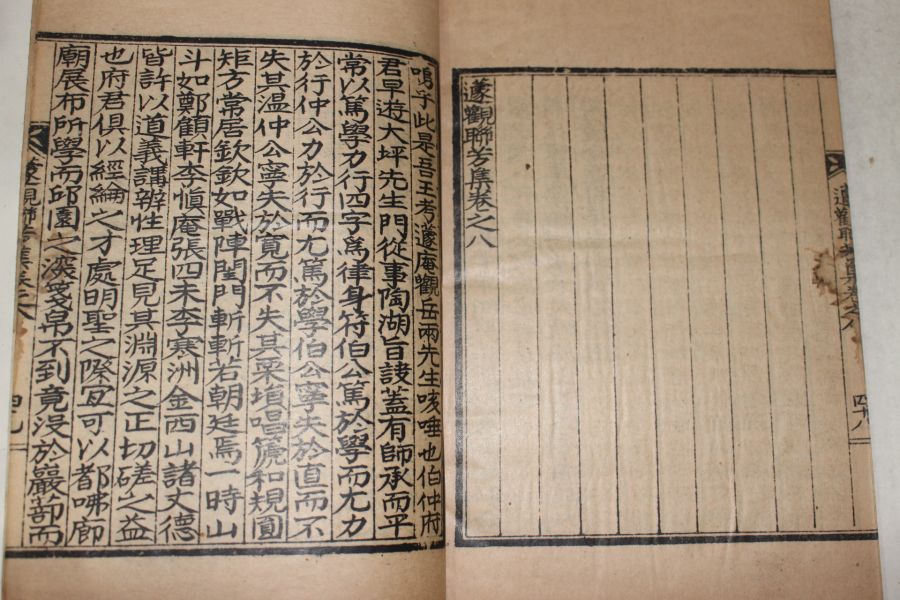 遯觀聯芳集卷之八
嗚乎此是吾王考遯庵觀岳兩先生咳唾也伯仲府
君早遊大坪先生門從事陶湖旨訣蓋有師承而平
常以篤學力行四字爲律身符伯公篤於學而尤力
於行仲公力於行而尤篤於學伯公寧失於直而不
失其溫仲公寧失於寬而不失其栗塤唱篪和規圓
矩方常居欽欽如戰陣閨門斬斬若朝廷焉一時山
斗如鄭顧軒李愼庵張四未李寒洲金西山諸丈德
皆許以道義講辨性理足見其淵源之正切磋之益
也府君俱以經綸之才處明聖之際宜可以都咈廊
廟展布所學而邱園之深箋帛不到竟沒於巖蔀而
遯觀聯芳集卷之八
四十八
四十九